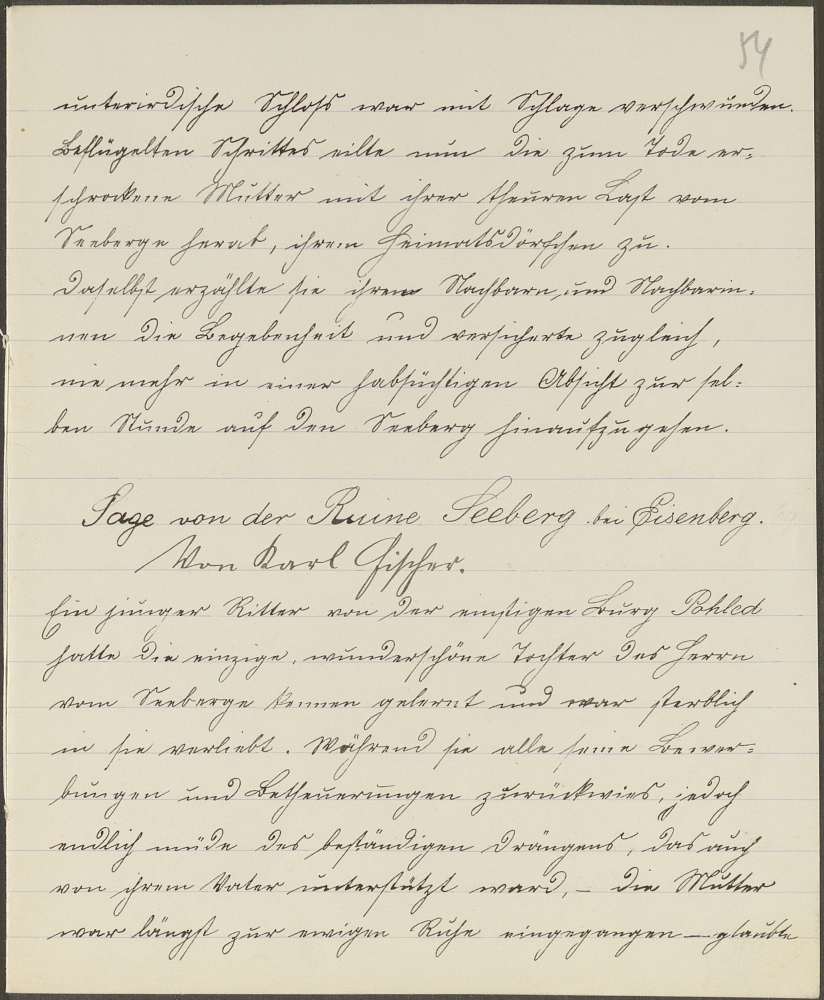 54
unterirdische Schloß war mit Schlage verschwunden.
Beflügelten Schrittes eilte nun die zum Tode er-
schrockene Mutter mit ihrer theuren Last vom
Seeberge herab, ihrem Heimatsdörfchen zu.
Daselbst erzählte sie ihren Nachbarn und Nachbarin-
nen die Begebenheit und versicherte zugleich,
nie mehr in einer habsüchtigen Absicht zur sel-
ben Stunde auf den Seeberg hinaufzugehen.
Sage von der Ruine Seeberg bei Eisenberg.
Von Karl Fischer.
Ein junger Ritter von der einstigen Burg Pohled
hatte die einzige, wunderschöne Tochter des Herrn
vom Seeberge kennen gelernt und war sterblich
in sie verliebt. Während sie alle seine Bewer-
bungen und Betheuerungen zurückwies, jedoch
endlich müde des beständigen Drängens, das auch
von ihrem Vater unterstützt ward, – die Mutter
war längst zur ewigen Ruhe eingegangen – glaubte